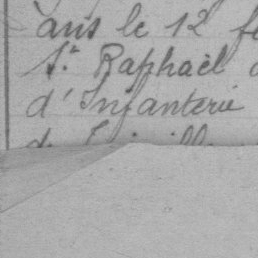 dans le 12 fé
St Raphaël
d'Infanterie